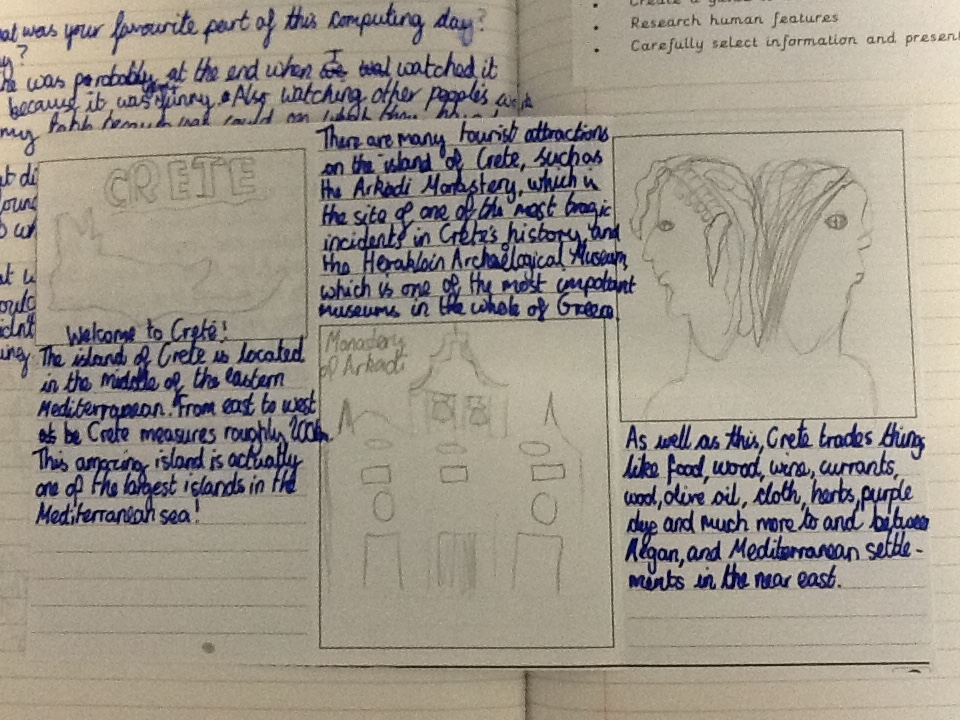 was your favourite part of this computing day?
he was probably at the end when I watched it
because it was funny. Also watching other people's
my
Research human features
Carefully select information and present
CRETE
Welcome to Crete!
The island of Crete is located
in the middle of the eastern
Mediterranean. From east to west
be Crete measures roughly
This amazing island is actually
one of the largest islands in the
Mediterranean sea!
There are many tourist attractions
on the island of Crete, such as
the Arkadi Monastery, which is
the site of one of the most tragic
incidents in Crete's history and
the Herakloin Archaelogical Museum,
which is one of the most impottant
museums in the whole of Greece
Monastery
of Arkadi
As well as this, Crete trades things
like food, wood, wine, currants,
wool, olive oil, cloth, herbs, purple
dye and much more to and between
Aegan, and Mediterranean settle-
ments in the near east.